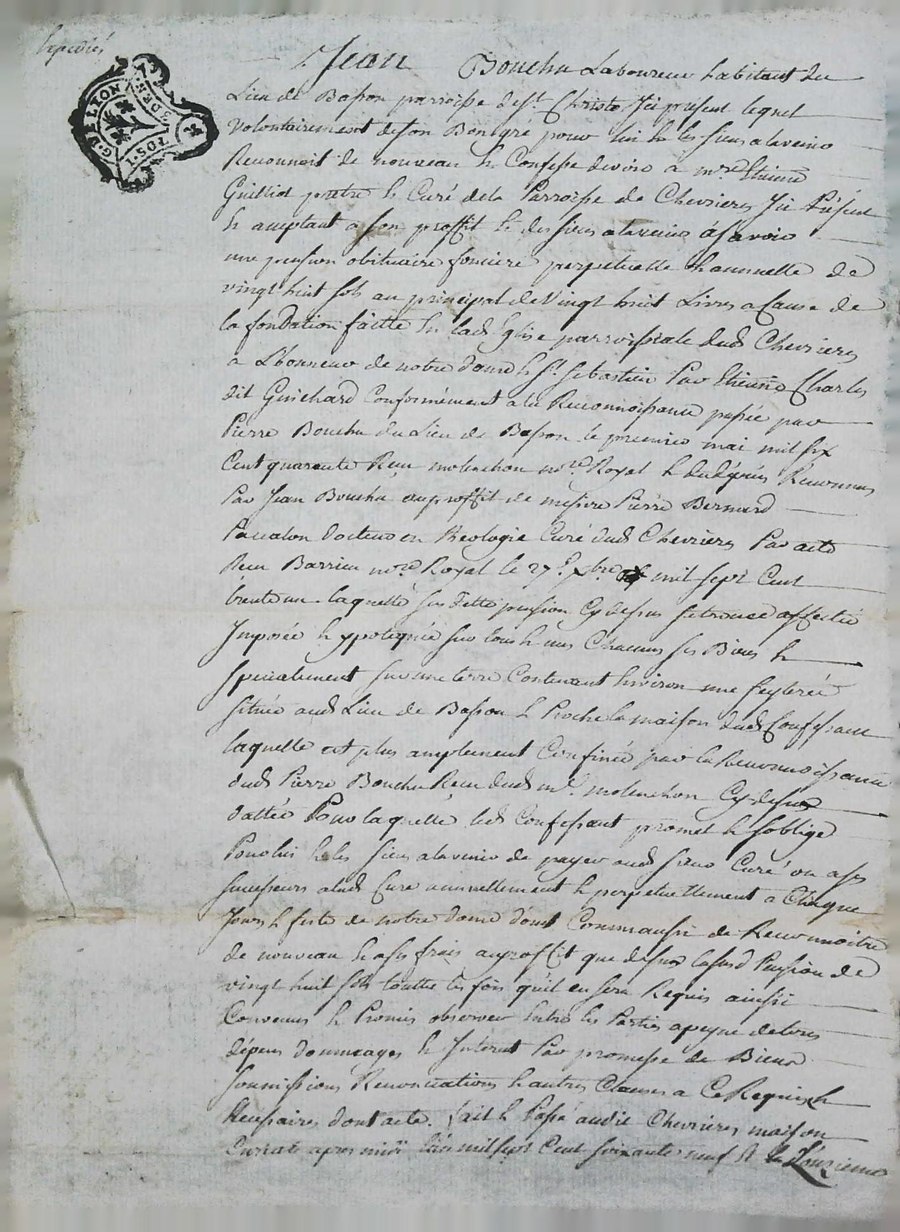 Expediés
G. DE LYON
Jean Bouchu Laboureur habitant du
Lieu de Basson parroisse de st Christo Icy present lequel
Volontairement de son Bongré pour lui & les siens alavenir
Reconnoit de nouveau & Confesse devoir à mre Etienne
Guilliot pretre & Curé de la Parroisse de Chevrieres Icy Présent
& aceptant a son proffit & des siens alavenir à savoir
une pension obituaire fonciere perpetuelle & annuelle de
vingt huit sols au principal de Vingt huit Livres a Cause de
la fondation faitte En lad Eglise parroissiale dud Chevrieres
à L'honneur de notre dame & St Sebastien Par Etienne Charles
dit Guichard Conformément à la Reconnoissance passée par
Pierre Bouchu du Lieu de Basson le premier mai mil six
Cent quarante Reçu molenchon nore Royal & dud depuis Reconnue
Par Jean Bouchu au proffit de messire Pierre Bernard
Pacalon docteur en Theologie Curé dud Chevrieres Par acte
Reçu Barrieu nore Royal le 27e xbre mil sept Cent
trente un laquelle susditte pension Cy dessus se trouve affectée
Imposée & ypotequée sur tous & uns Chacuns ses Biens &
specialement sur une terre Contenant Environ une seyterée
située aud Lieu de Basson & Proche la maison dud Confessant
laquelle est plus amplement Confinée par la Reconnoissance
dud Pierre Bouchu Reçue dud me molenchon Cy dessus
dattée Pour laquelle led Confessant promet & s'oblige
Pour lui & les siens alavenir de payer aud sieur Curé ou a ses
successeurs alad Cure annuellement & perpetuellement a Chaque
Jour & feste de notre dame d'aout Comm'aussi de Reconnoitre
de nouveau & a ses frais au proffit que dessus lasusd Pension de
vingt huit sols toutte les fois qu'il en sera Requis ainsi
Convenus & Promis observer Entre les Parties a peyne de tous
depens dommages & Interets Par promesse de Biens
soumissions Renonciations & autres Clauses a Ce Requises &
Necessaires dont acte. fait & Passé audit Chevrieres maison
Curiale apres midi L'an mil sept Cent soixante neuf & le Onzieme